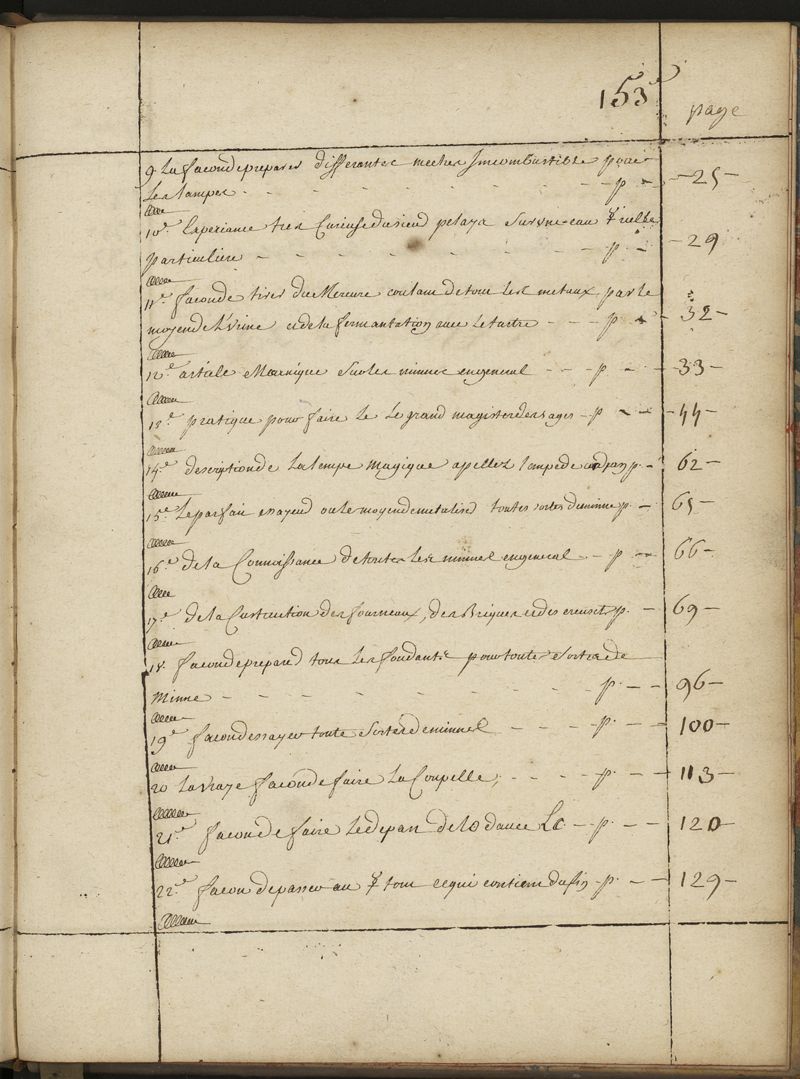 153
page
9. La facon de preparer differantes meches Jncombustible pour
Les lampes - - - - - - p - - 25 -
10.e Experiance tres Curieuse du sieud
particuliere - - - - - - p - - 29
11.e facon de tirer du Mercure coulant de tout les metaux, par le
moyen de L'urine et de la fermantation avec le tartre - - - p - - 32 -
12.e article
en general - - p - - 33 -
13.e pratique pour faire le Le grand magister des sages - p - - 44 -
14.e description de La lempe magique apellez lampe de p. - 62 -
15.e Le parfait essayeud ou le moyen de metalised toutes sortes de minne p. - 65 -
16.e de la Connoissance de toutes les minnel en general - p - 66 -
17.e de la Custruction des fourneaux, des Briques et des creusets p. - 69 -
18. facon de prepared tous Les fondants pour toute Sortes de
Minne - - - - - - p. - - 96 -
19.e facon d'essayer toute Sortes de minnel - - - p. - - 100 -
20 La vraye facon de faire La Coupelle, - - - p. - - 113 -
21.e facon de faire Le depart de - p. - - 120 -
22.e facon de passer au ☿ tout ce qui contient du fin - p. - - 129 -